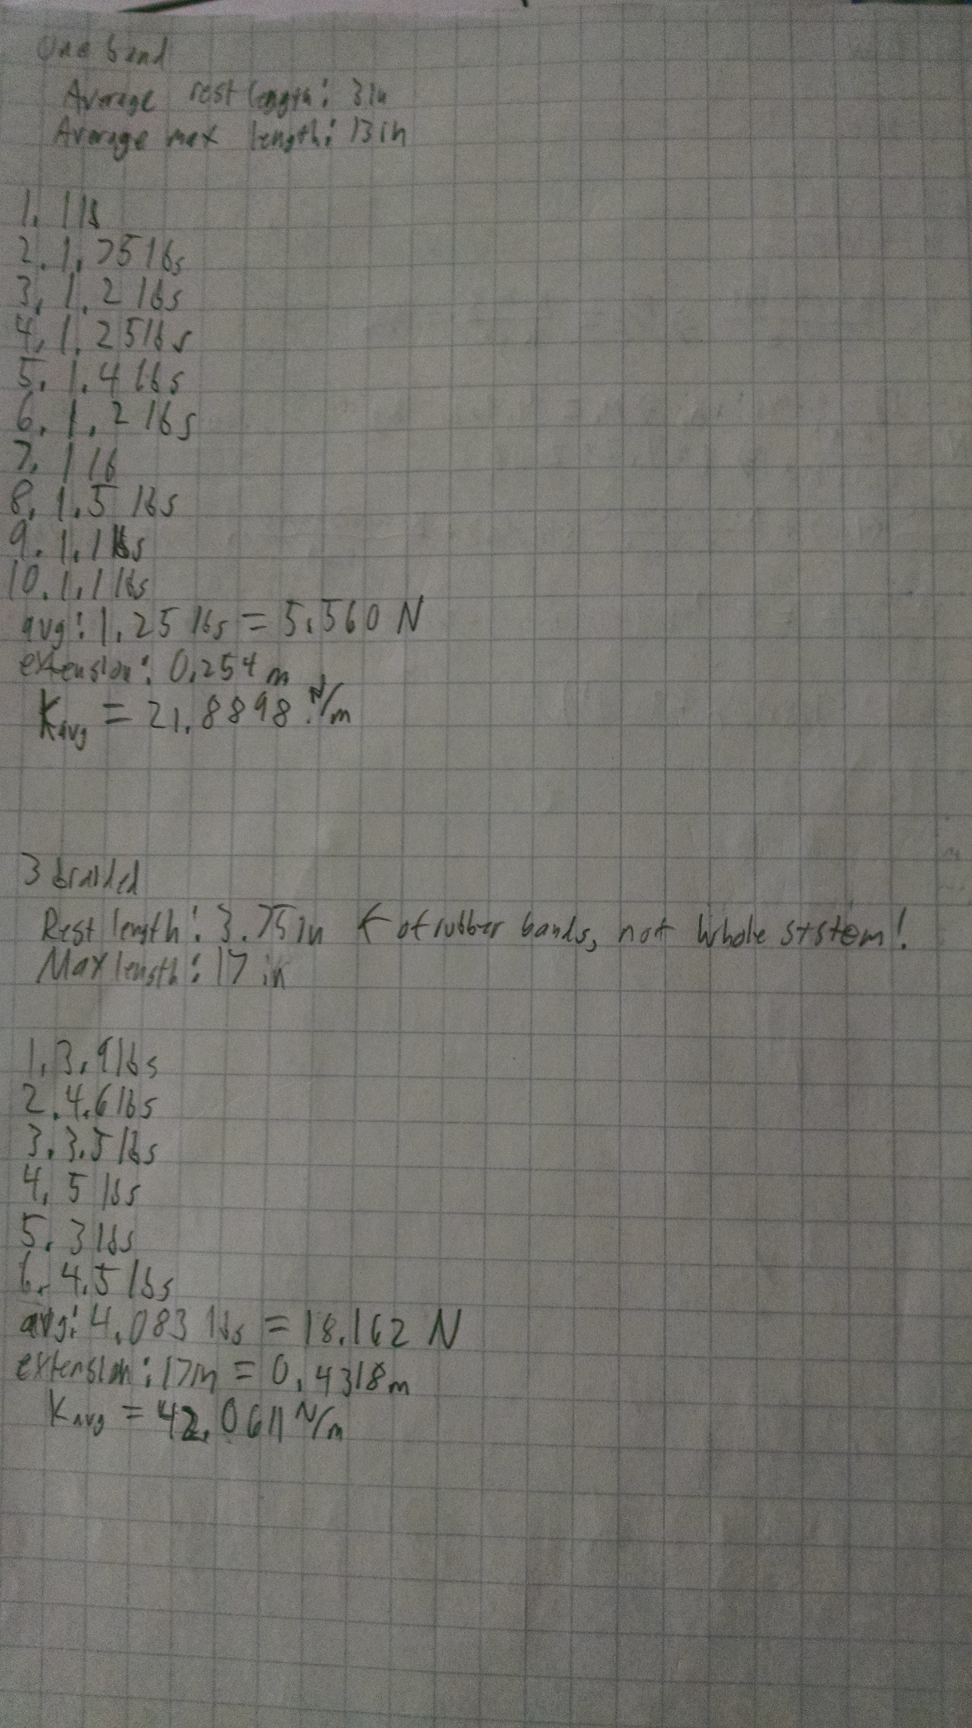 One band
Average rest length: 3in
Average max length: 13in
1. 1 lb
2. 1.75 lbs
3. 1.2 lbs
4. 1.25 lbs
5. 1.4 lbs
6. 1.2 lbs
7. 1 lb
8. 1.5 lbs
9. 1.1 lbs
10. 1.1 lbs
avg: 1.25 lbs = 5.560 N
extension: 0.254 m
Kavg = 21.8898 N/m
3 braided
Rest length: 3.75in ← of rubber bands, not whole system!
Max length: 17 in
1. 3.9 lbs
2. 4.6 lbs
3. 3.5 lbs
4. 5 lbs
5. 3 lbs
6. 4.5 lbs
avg: 4.083 lbs = 18.162 N
extension: 17in = 0.4318m
Kavg = 42.0611 N/m